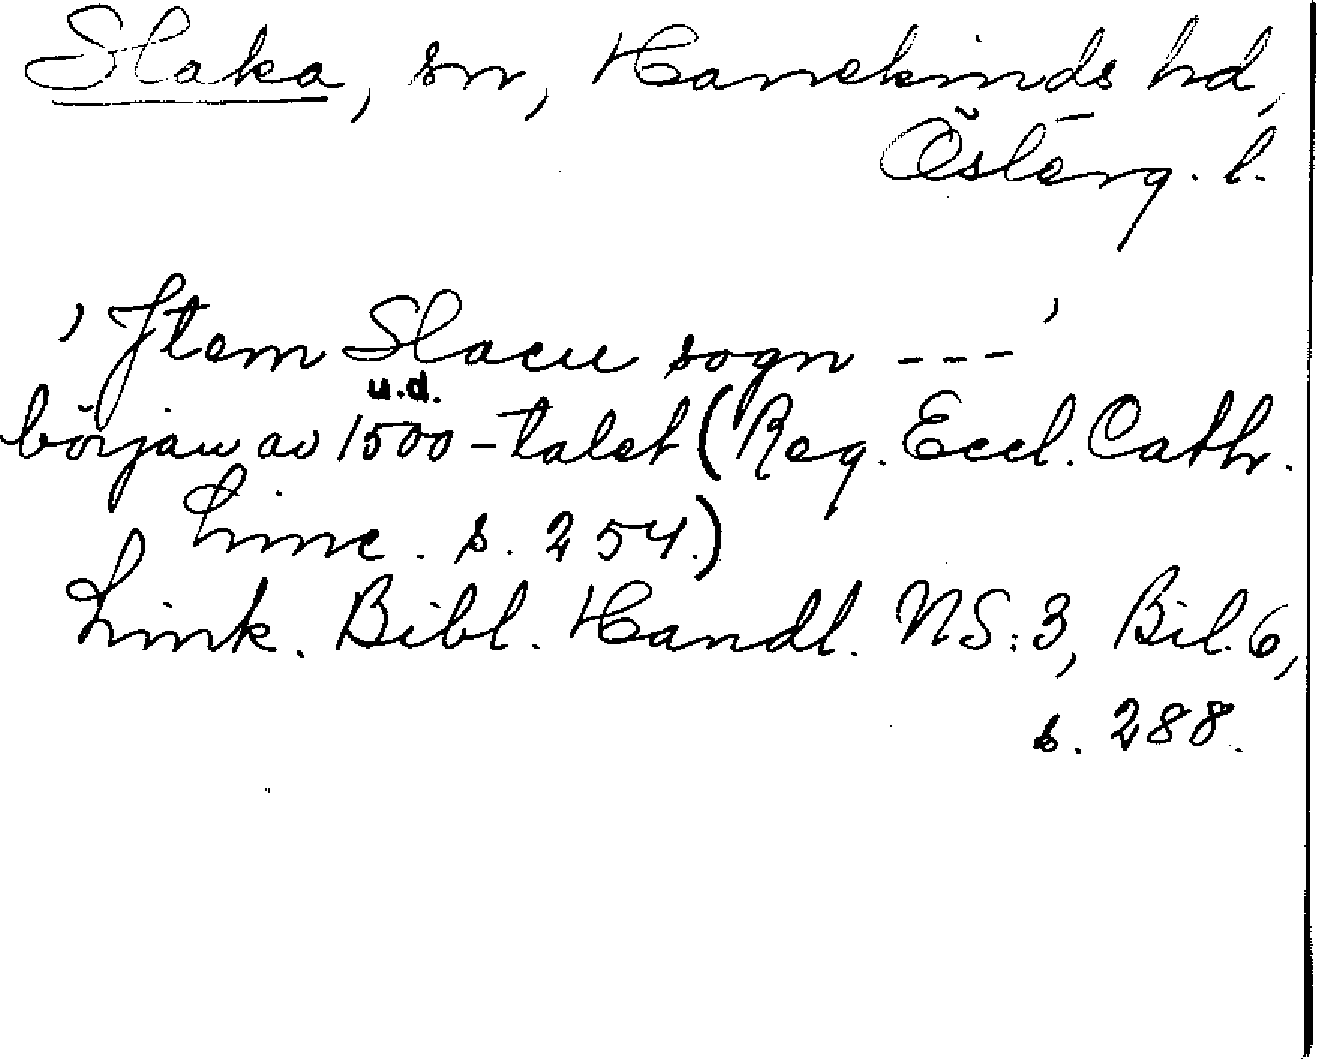 Slaka, sn, Hanekinds hd,
Österg. l.
'Item Slacu sogn ---'
u.d.
början av 1500-talet (Reg. Eccl. Cath.
Linc. s. 254.)
Link. Bibl. Handl. NS:3, Bil. 6,
s. 288.